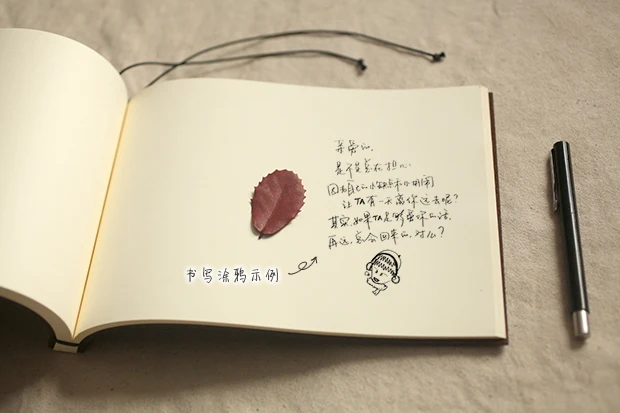 亲爱的,
是不是总在担心
因为自己的小缺点和小
让TA有一天离你远去呢?
其实,如果TA是够爱你的话,
再远,总会回来的,对么?
书写涂鸦示例